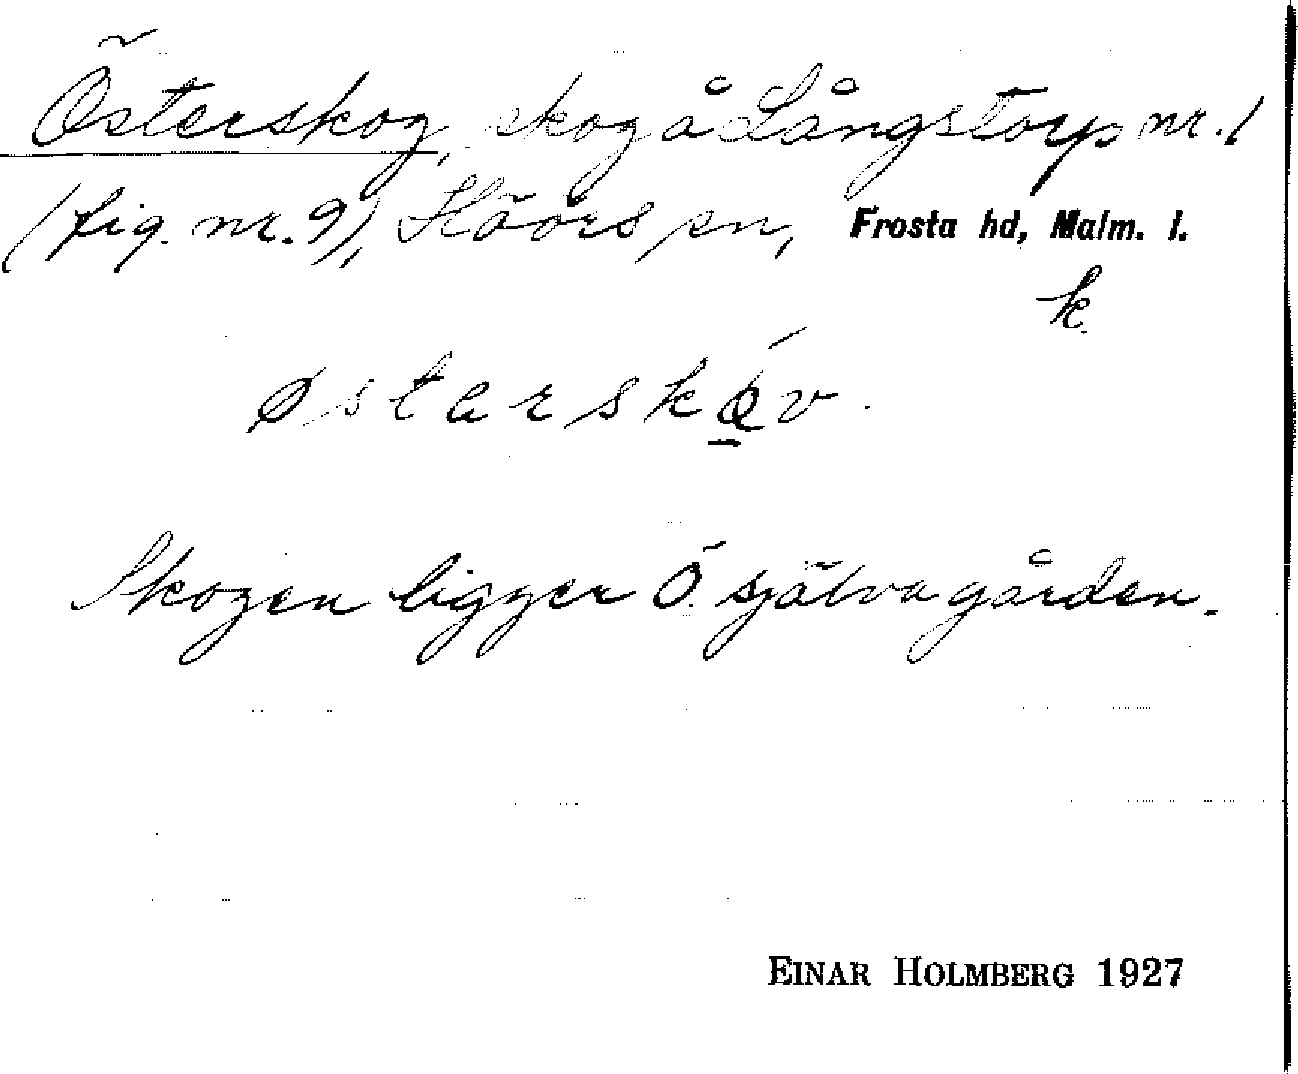 Österskog, skog å Långstorp nr. 1
(fig. nr. 9), Höörs sn, Frosta hd, Malm. l.
k.
østarskǫ́v.
Skogen ligger Ö. själva gården.
EINAR HOLMBERG 1927